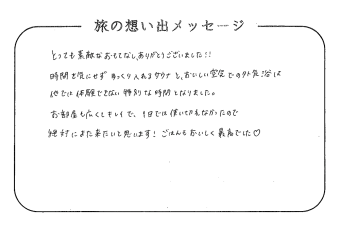 旅の想い出メッセージ
とっても素敵なおもてなし、ありがとうございました!!
時間を気にせず ゆっくり入れるサウナと、おいしい空気での外気浴は
他では体験できない特別な時間となりました。
お部屋も広くてキレイで、1日では使い切れなかったので
絶対にまた来たいと思います! ごはんもおいしく最高でした♡